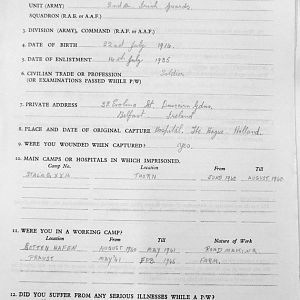 UNIT (ARMY), Irish Guards
SQUADRON (R.A.F. or A.A.F.)
3. DIVISION (ARMY), COMMAND (R.A.F. or A.A.F.)
4. DATE OF BIRTH 22nd July 1916.
5. DATE OF ENLISTMENT July 1935
6. CIVILIAN TRADE OR PROFESSION Soldier
(OR EXAMINATIONS PASSED WHILE P/W)
7. PRIVATE ADDRESS St.
Belfast, Ireland
8. PLACE AND DATE OF ORIGINAL CAPTURE Hospital, The Hague, Holland.
9. WERE YOU WOUNDED WHEN CAPTURED? yes.
10. MAIN CAMPS OR HOSPITALS IN WHICH IMPRISONED.
Camp No. Location From Till
STALAG XXA THORN JUNE 1940 AUGUST 1940
11. WERE YOU IN A WORKING CAMP?
Location From Till Nature of Work
AUGUST 1940 MAY 1941 ROAD MAKING
PRAUST MAY 41 FEB 1945 FARM.
12. DID YOU SUFFER FROM ANY SERIOUS ILLNESSES WHILE A P/W?